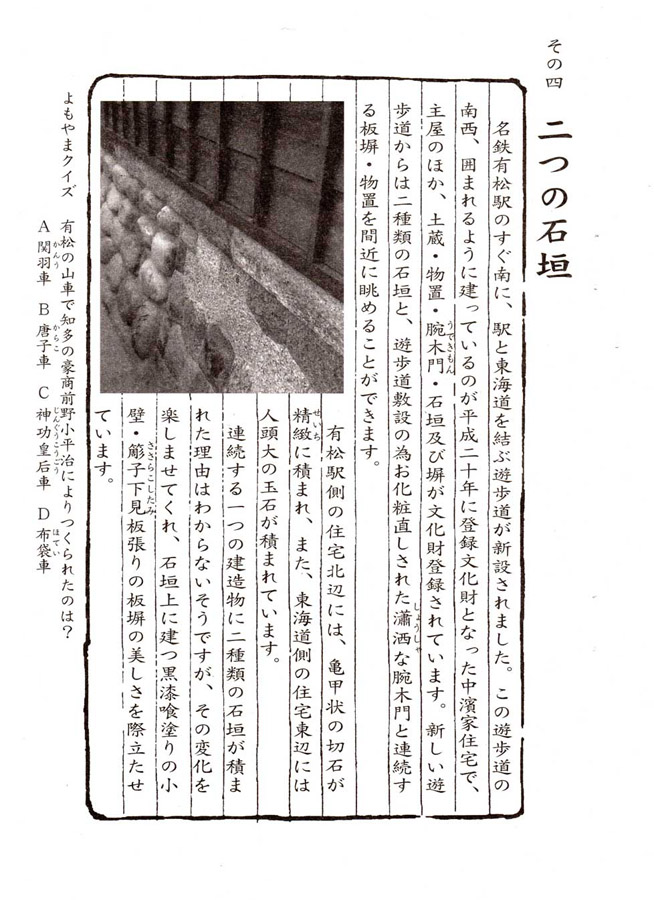 その四
二つの石垣
名鉄有松駅のすぐ南に、駅と東海道を結ぶ遊歩道が新設されました。この遊歩道の
南西、囲まれるように建っているのが平成二十年に登録文化財となった中濱家住宅で、
うできもん
主屋のほか、土蔵・物置・腕木門・石垣及び塀が文化財登録されています。新しい遊
しょうしゃ
歩道からは二種類の石垣と、遊歩道敷設の為お化粧直しされた瀟洒な腕木門と連続す
る板塀・物置を間近に眺めることができます。
有松駅側の住宅北辺には、亀甲状の切石が
せいち
精緻に積まれ、また、東海道側の住宅東辺には
人頭大の玉石が積まれています。
連続する一つの建造物に二種類の石垣が積ま
れた理由はわからないそうですが、その変化を
楽しませてくれ、石垣上に建つ黒漆喰塗りの小
ささらこしたみ
壁・簓子下見板張りの板塀の美しさを際立たせ
ています。
よもやまクイズ 有松の山車で知多の豪商前野小平治によりつくられたのは？
かんう からこ じんぐうこうごう ほてい
A 関羽車 B 唐子車 C 神功皇后車 D 布袋車